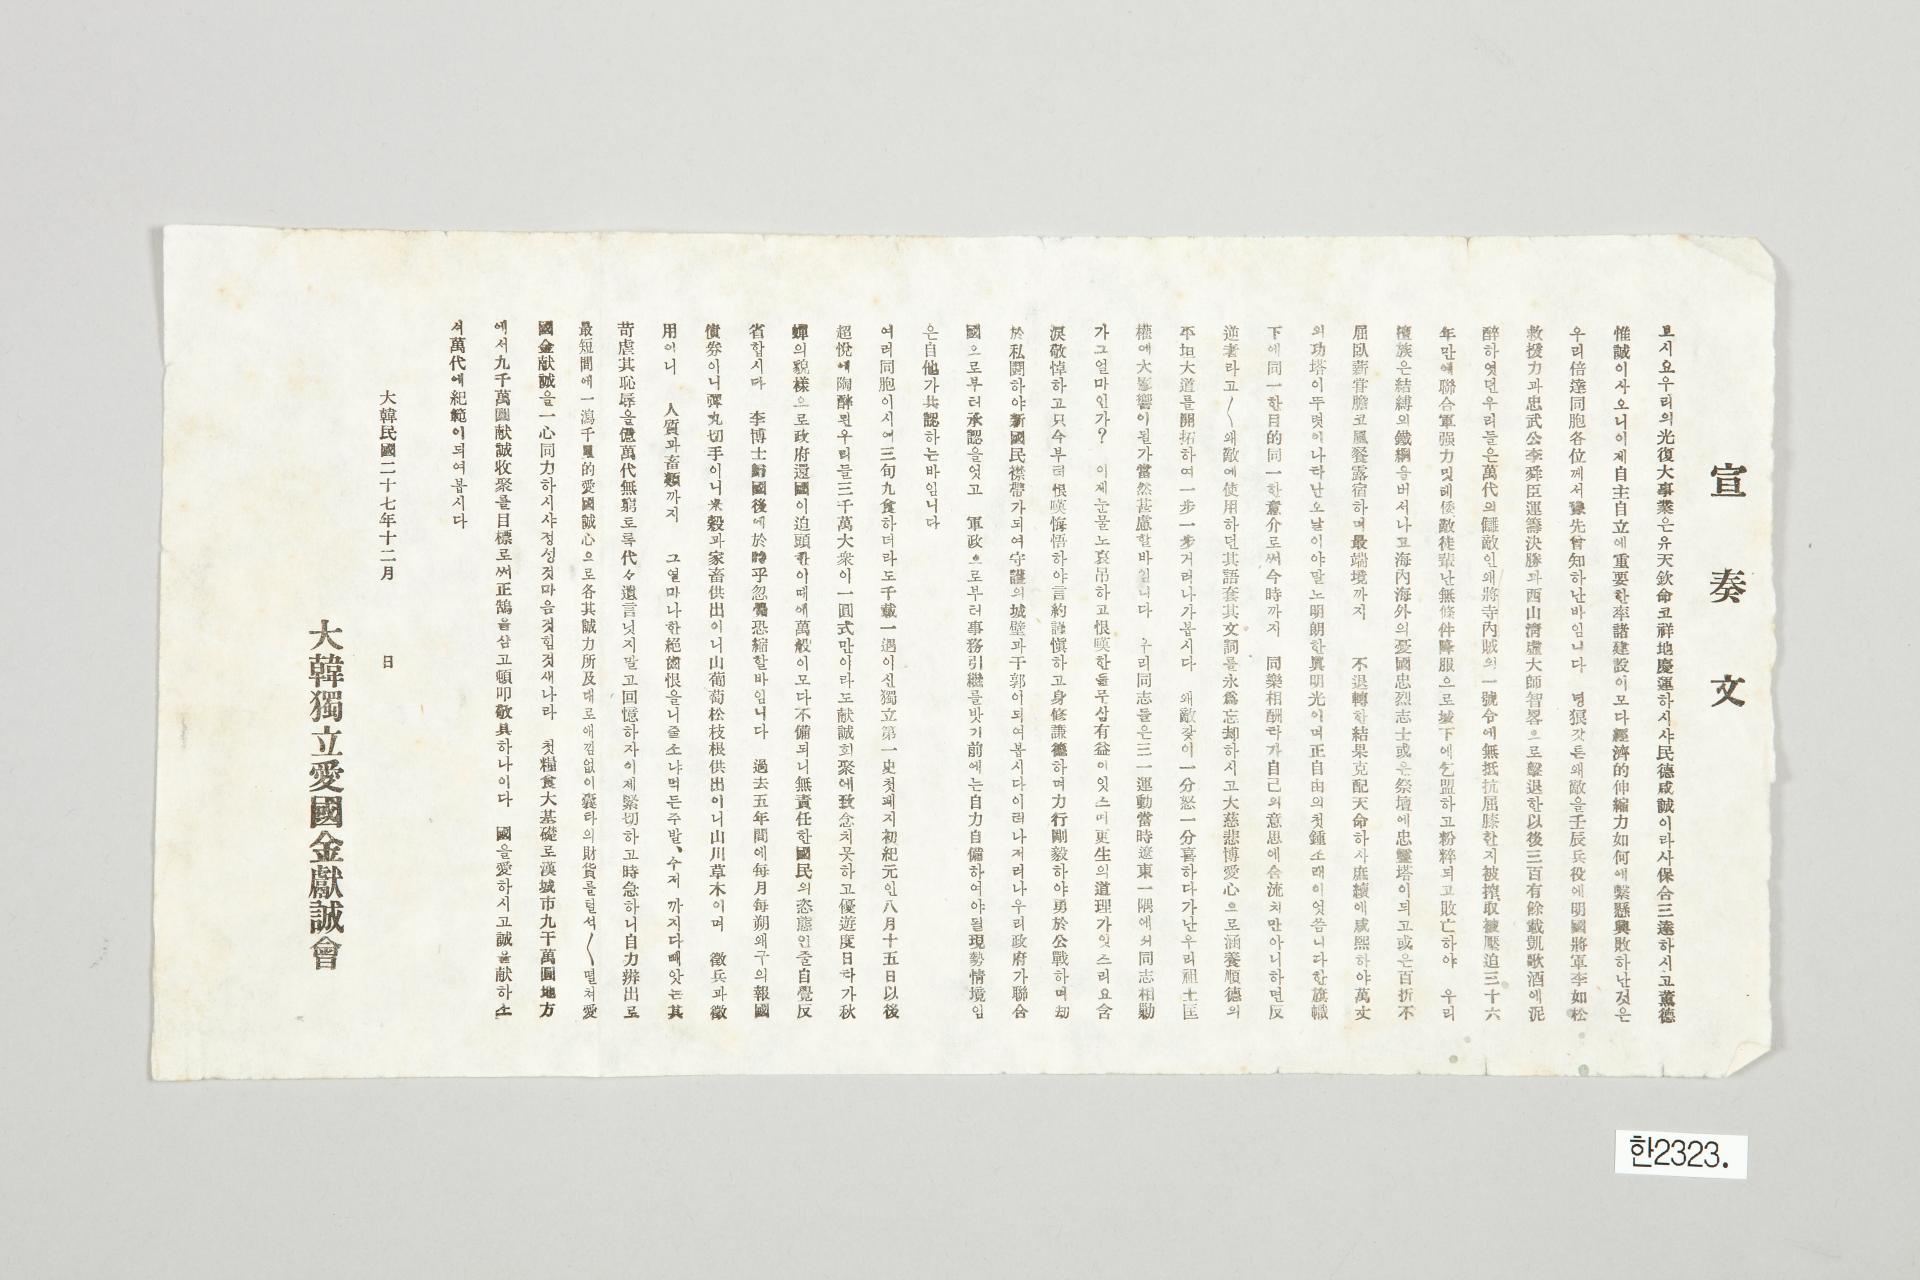 宣奏文
보시요우리의光復大事業은유天欽命코祥地慶運하시샤民德咸誠이라사保合三達하시고薰德
惟誠이사오니이제自主自立에重要한率諸建設이모다經濟的伸縮力如何에繫懸興敗하난것은
우리倍達同胞各位께서豫先曾知하난바임니다 명狠갓튼왜敵을壬辰兵役에明國將軍李如松
救援力과忠武公李舜臣運籌決勝과西山淸虛大師智畧으로擊退한以後三百有餘載凱歌酒에泥
醉하엿던우리들은萬代의讎敵인왜將寺內賊의一號令에無抵抗屈膝한지被搾取被壓迫三十六
年만에聯合軍强力밋헤倭敵徒輩난無條件降服으로城下에乞盟하고粉粹되고敗亡하야 우리
檀族은結縛의鐵網을버서나고海內海外의憂國忠烈志士或은祭壇에忠靈塔이되고或은百折不
屈臥薪甞膽코風餐露宿하며最端境까지 不退轉한結果克配天命하사庶績에咸熙하야萬丈
의功塔이뚜렷이나타난오날이야말노明朗한眞明光이며正自由의첫鍾소래이엇씀니다한旗幟
下에同一한目的同一한意介로써今時까지 同樂相酬타가自己의意思에合流치만아니하면反
逆者라고〳〵왜敵에使用하던其語套其文詞를永爲忘却하시고大慈悲博愛心으로涵養順德의
平坦大道를開拓하여一步一步거러나가봅시다 왜敵갓이一分怒一分喜하다가난우리祖土匡
權에大影響이될가當然甚慮할바임니다 우리同志들은三一運動當時遼東一隅에서同志相勦
가그얼마인가? 이제눈물노哀吊하고恨嘆한들무삼有益이잇스며更生의道理가잇스리요含
淚敬悼하고只今부터恨嘆悔悟하야言約謹愼하고身修謙德하며力行剛毅하야勇於公戰하며刧
於私鬪하야新國民襟帶가되여守護의城壁과干郭이되여봅시다이러나저러나우리政府가聯合
國으로부러承認을엇고 軍政으로부터事務引繼를밧기前에는自力自備하여야될現勢情境임
은自他가共認하는바임니다
여러同胞이시여三旬九食하더라도千載一遇이신獨立第一史첫페지初紀元인八月十五日以後
超悅에陶醉된우리들三千萬大衆이一圓式만이라도献誠희聚에致念치못하고優遊度日하가秋
蟬의貌樣으로政府還國이迫頭한이때에萬般이모다不備되니無責任한國民의恣態인줄自覺反
省합시다 李博士歸國後에於時乎忽惕恐縮할바임니다 過去五年間에每月每朔왜구의報國
債券이니彈丸切手이니米穀과家畜供出이니山葡萄松枝根供出이니山川草木이며 徵兵과徵
用이니 人質과畜類까지 그얼마나한絕齒恨을니즐소냐먹든주발、수저 까지다빼앗는其
苛虐其恥辱을億萬代無窮로록代々遺言닛지말고回憶하자이제緊切하고時急하니自力辨出로
最短間에一瀉千里的愛國誠心으로各其誠力所及대로애낌없이囊타의財貨를털석〳〵떨처愛
國金献誠을一心同力하시샤정성것마음것힘것새나라 첫糧食大基礎로漢城市九千萬圓地方
에서九千萬圓献誠收聚를目標로써正鵠을삼고頓叩敬具하나이다 國을愛하시고誠을献하소
셔萬代에紀範이되여봅시다
大韓民國二十七年十二月 日
大韓獨立愛國金獻誠會
한2323.